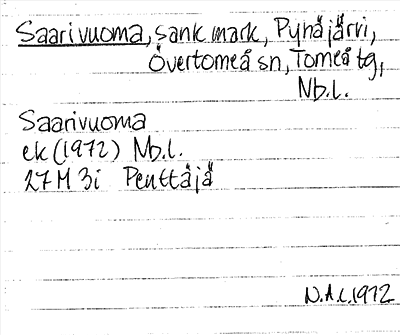 Saarivuoma, sank mark, Pyhäjärvi,
Övertorneå sn, Torneå tg,
Nb.l.
Saarivuoma
ek (1972) Nb.l.
27M 3i Penttäjä
N.Å.L. 1972